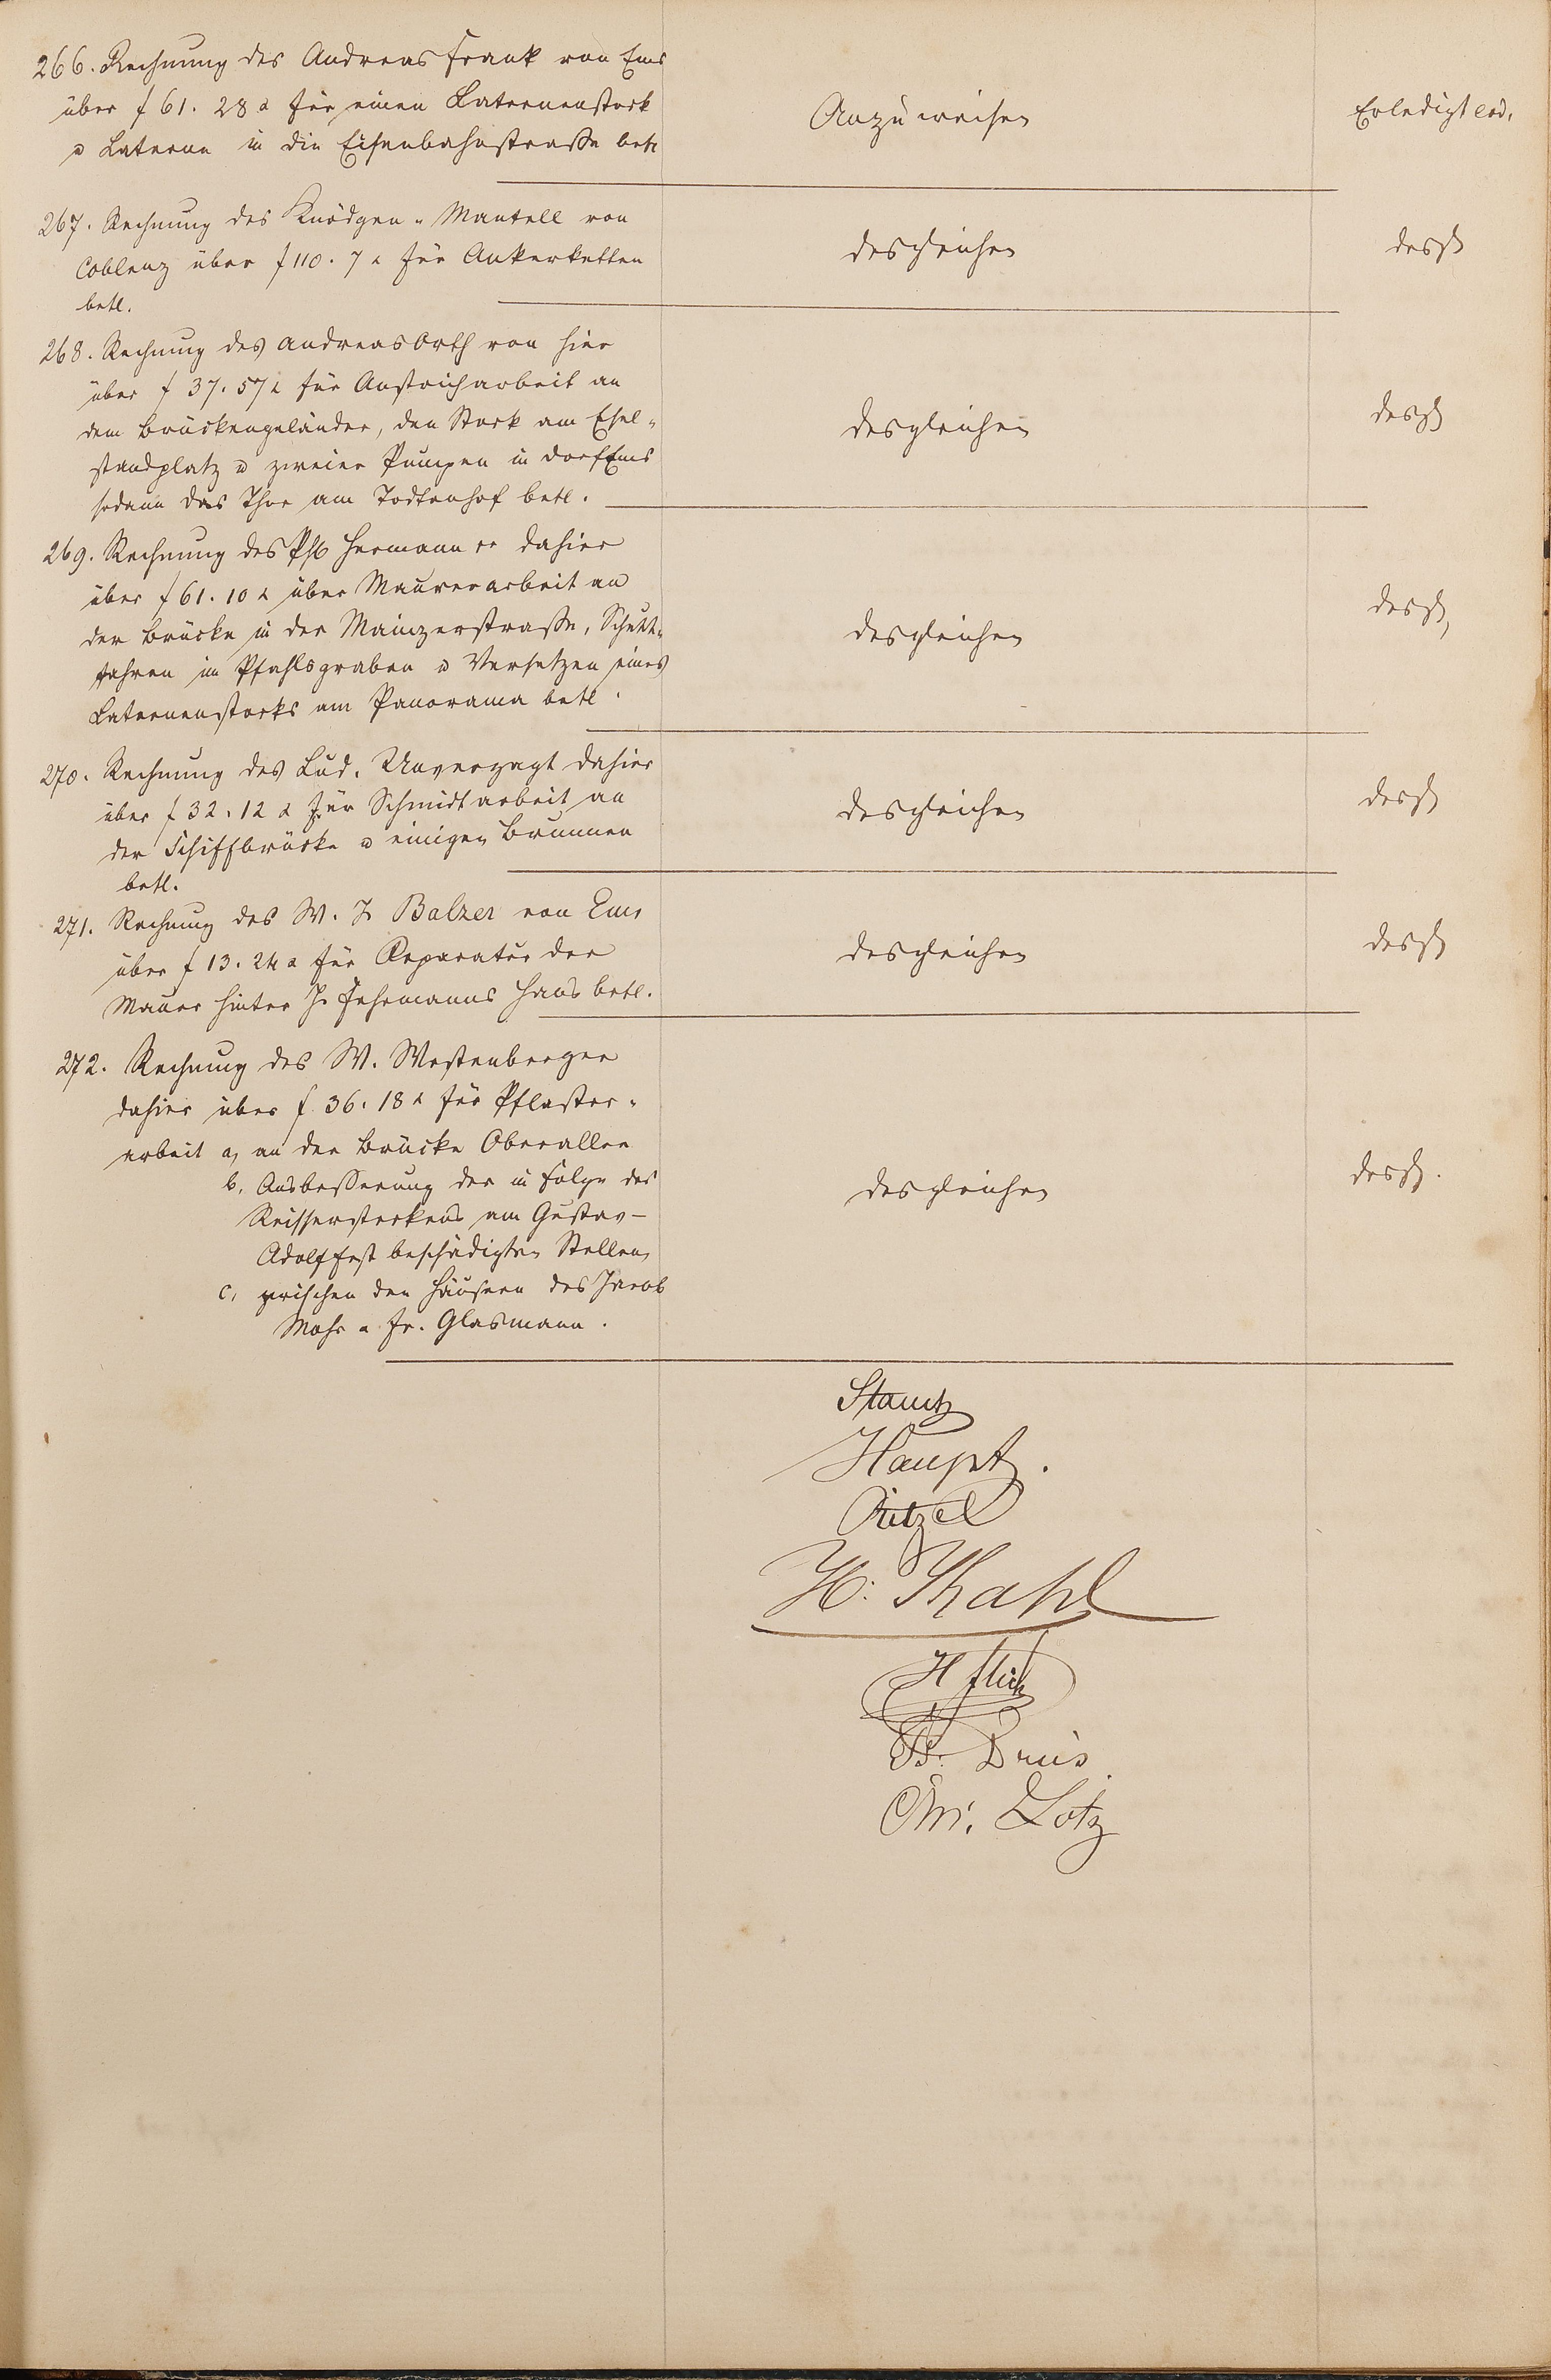 266. Rechnung des Andreas Frank von Ems
über f 61. 28 x für einen Laternenstock
u Laterne in die Eisenbahnstraße betr
Anzuweisen
Erledigt eod.
267. Rechnung des Knödgen u Mantell von
Coblenz über f 110. 7 x für Ankerketten
betr.
desgleichen
desgl
268. Rechnung des Andreas Orth von hier
über f 37. 57 x für Anstricharbeit an
dem Brückengeländer, den Stock am Esel-
standplatz u zweier Pumpen in Dorf Ems
sodann das Thor am Todtenhof betr.
desgleichen
desgl
269. Rechnung des Ph Hermann dahier
über f 61. 10 x über Maurerarbeit an
der Brücke in der Mainzerstraße, Schutt-
fahren im Pfahlsgraben u Versetzen eines
Laternenstocks am Panorama betr.
desgleichen
desgl
270. Rechnung des Lud. Unverzagt dahier
über f 32. 12 x für Schmidtarbeit an
der Schiffbrücke u einigen Brunnen
betr.
desgleichen
desgl
271. Rechnung des W. Balzer von Ems
über f 13. 24 x für Reparatur der
Mauer hinter J. Fehrmanns Haus betr.
desgleichen
desgl
272. Rechnung des W. Westenberger
dahier über f. 36. 18 x für Pflaster-
arbeit a, an der Brücke Oberallee
b, Ausbesserung der in Folge des
Reissersteckens am Gustav-
Adolffest beschädigten Stellen,
c, zwischen den Häusern des Jacob
Mohr u Fr. Glasmann.
desgleichen
desgl.
Haupt.
Ritzel
H: Thahl
H Flick
Chri. Lotz